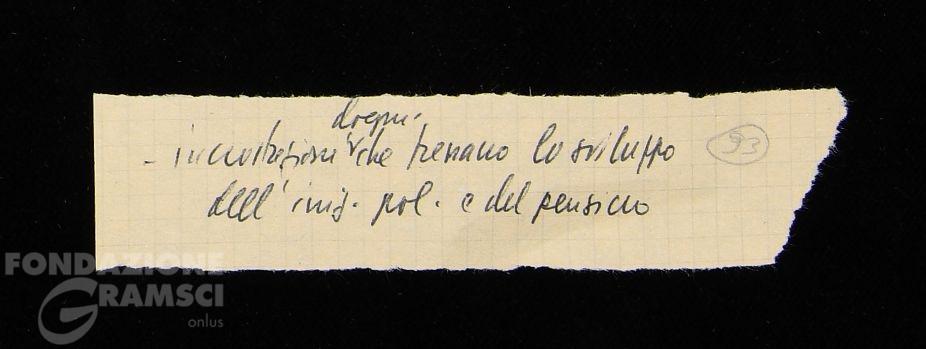 dogm.
- incrostazioni che frenano lo sviluppo
dell' iniz. pol. e del pensiero
93
FONDAZIONE
GRAMSCI
onlus